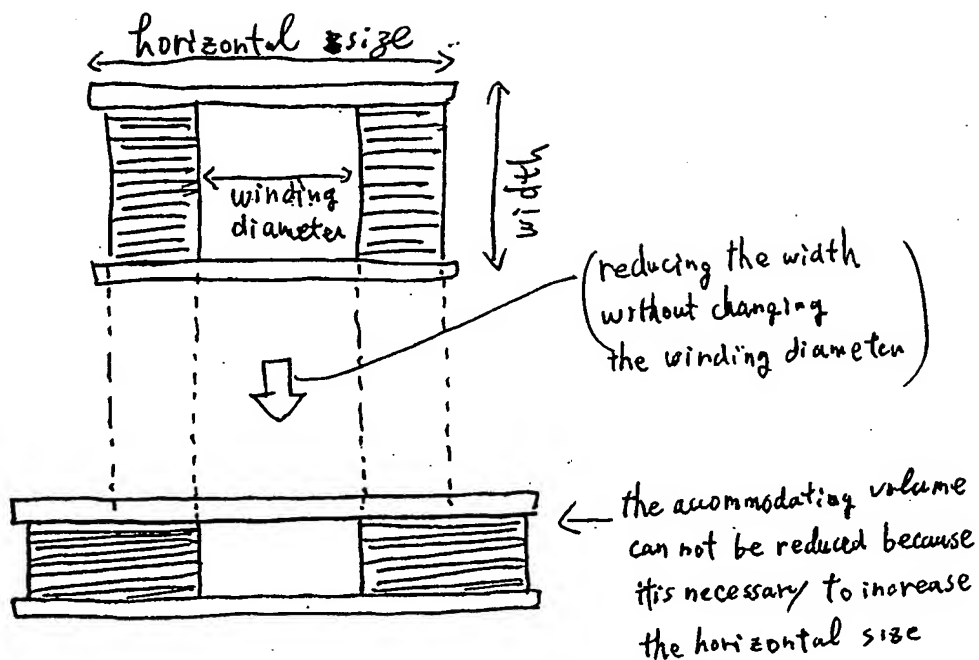 horizontal size
winding
diameter
width
(reducing the width
without changing
the winding diameter)
the accommodating volume
can not be reduced because
it is necessary to increase
the horizontal size